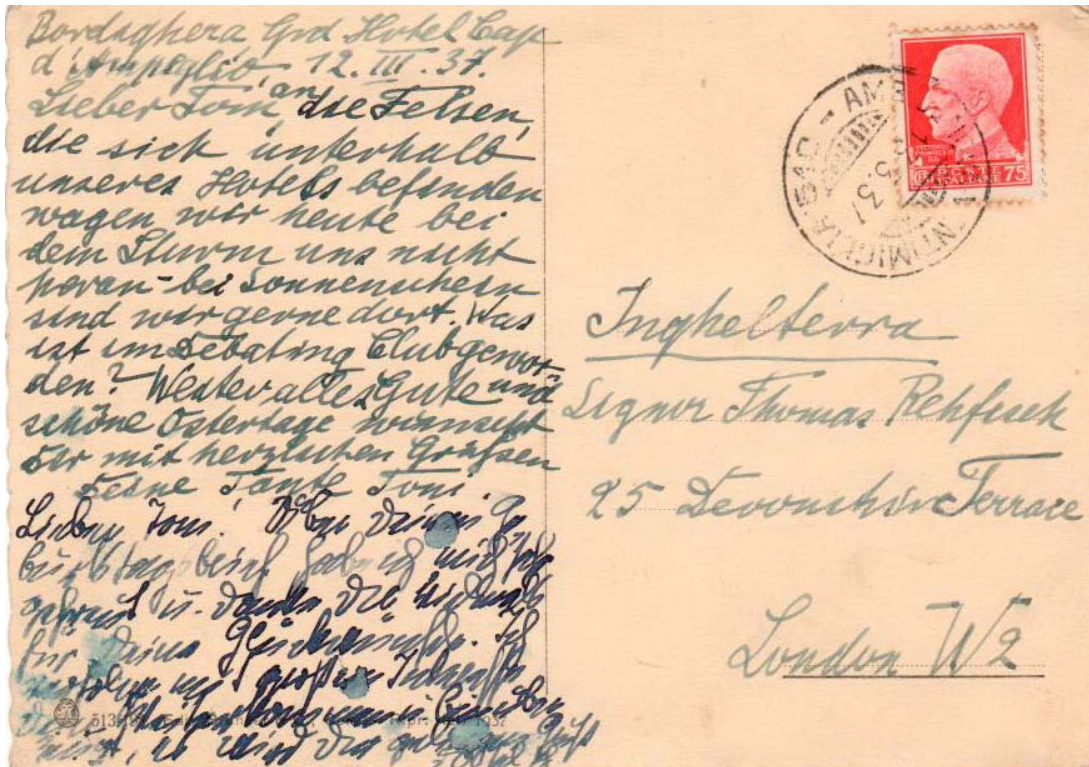 Bordighera Grd Hotel Cap
d'Ampeglio, 12. III. 37.
Lieber Tom, an die Felsen,
die sich unterhalb
unseres Hotels befinden
wagen wir heute bei
dem Sturm uns nicht
heran – bei Sonnenschein
sind wir gerne dort. Was
ist im Debating Club gewor-
den? Weiter alles Gute und
schöne Ostertage wünscht
Dir mit herzlichen Grüßen
Deine Tante Toni.
Lieber Tom! Über Deinen Ge-
burtstagsbrief hab ich mich sehr
gefreut u. danke Dir
für Deine Glückwünsche. Ich
verfolge mit großem Interesse
nicht, es wird Dir
VENTIMIGLIA
75
Inghelterra
Signor Thomas Rehfisch
25 Devonshire Terrace
London W2
513
1937